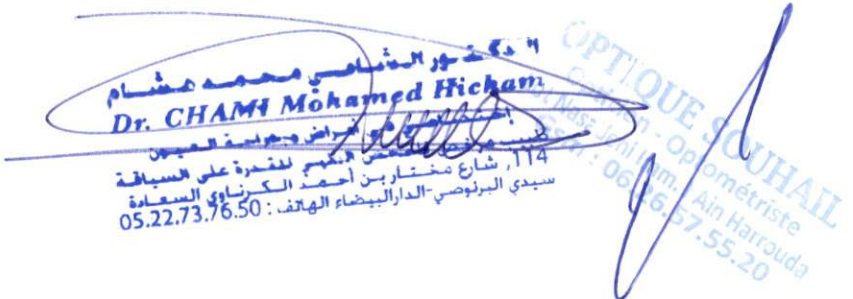 الدكتور الشامي محمد هشام
Dr. CHAMI Mohamed Hicham
إختصاصي في أمراض وجراحة العيون
الفحص الطبي للقدرة على السياقة
114, شارع مختار بن أحمد الكرناوي السعادة
سيدي البرنوصي-الدارالبيضاء الهاتف : 05.22.73.76.50
OPTIQUE SOUHAIL
Opticien - Optométriste
Nasr Jnil Imm. Ain Harrouda
06.66.57.55.20